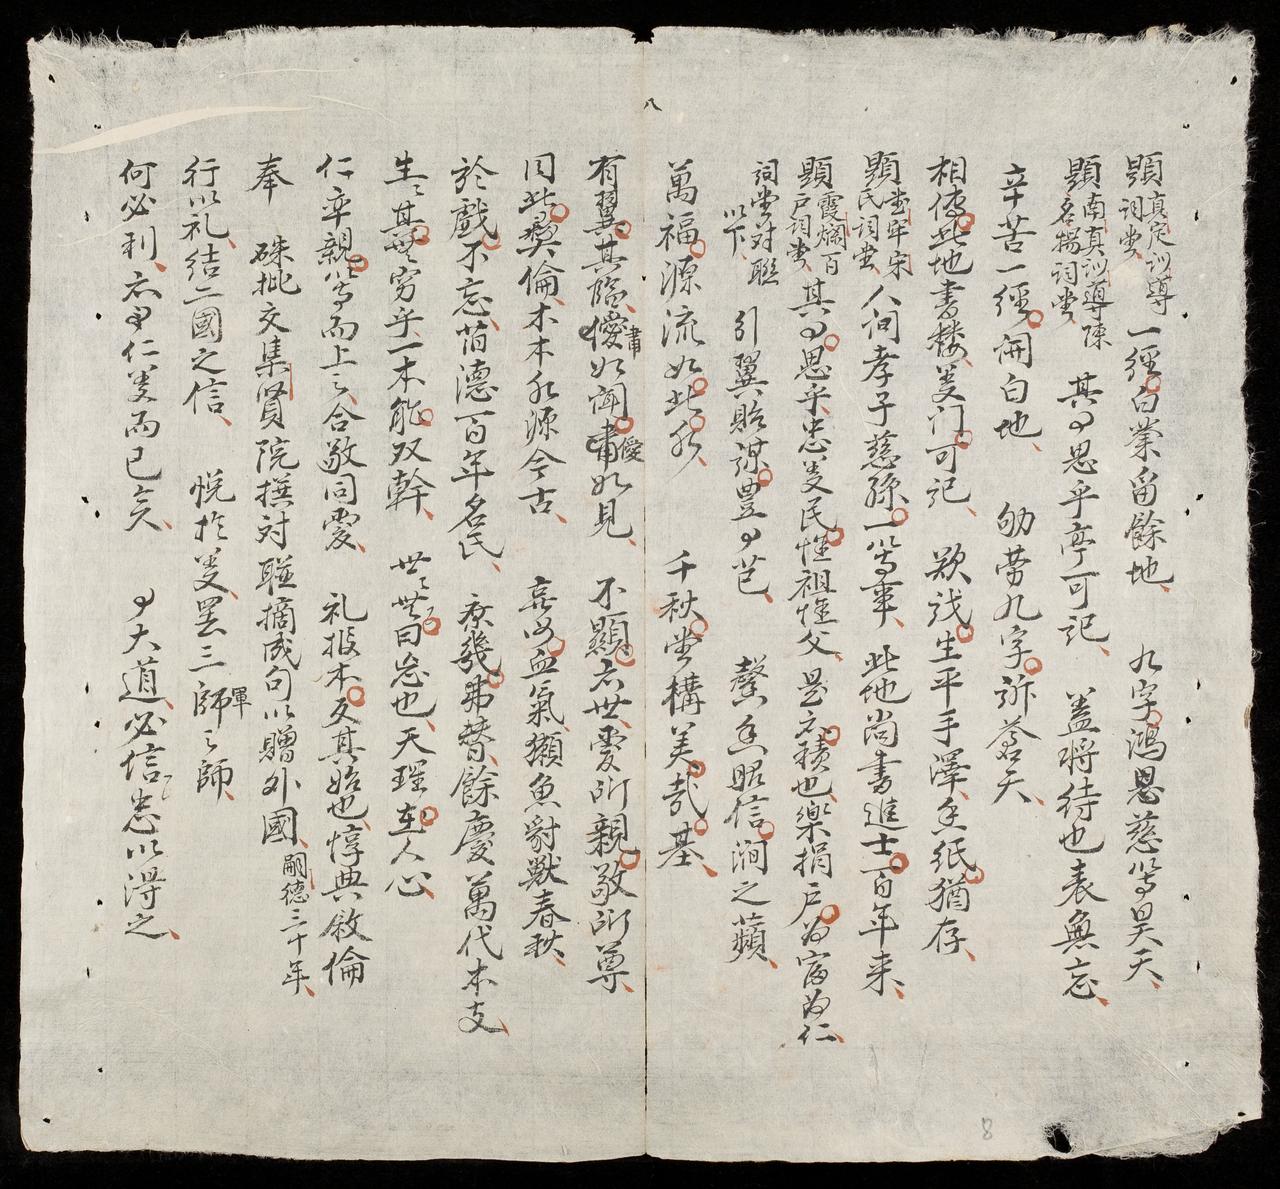 八
題真定訓導詞堂 一經白業留餘地 九字鴻恩慈等昊天
題南真訓導陳名揚詞堂 其思乎亭可記 蓋將待也表無忘
辛苦一經開白地 劬勞九字訴蒼天
相傳此地書樓義门可記 欺後生平手澤香紙猶存
題堂牢宋氏詞堂 人间孝子慈孫一等事 此地尚書進士百年来
題霞爛百户詞堂 其思乎忠義民惟祖惟父 是所積也樂捐户为富为仁
詞堂对聯以下 引翼貽謀豊芑 馨香昭信澗之蘋
萬福源流如此水 千秋堂構美哉基
有翼其臨僾肅如闻肅僾如見 不顯亦世愛所親敬所尊
同此彝倫木本水源今古 哀必血氣獺魚豺獸春秋
於戲不忘茚德百年名氏 庶幾弗替餘慶萬代本支
生〻其無穷乎一本能双幹 世〻世曰忠也天理在人心
仁率親等而上之合敬同愛 礼報本反其始也惇典敘倫
奉 硃批交集賢院撰对聫摘成句以贈外國 嗣德三十年
行以礼结二國之信 悅於義罷三師軍之師
何必利亦仁義而已矣 大道必信忠以得之
8